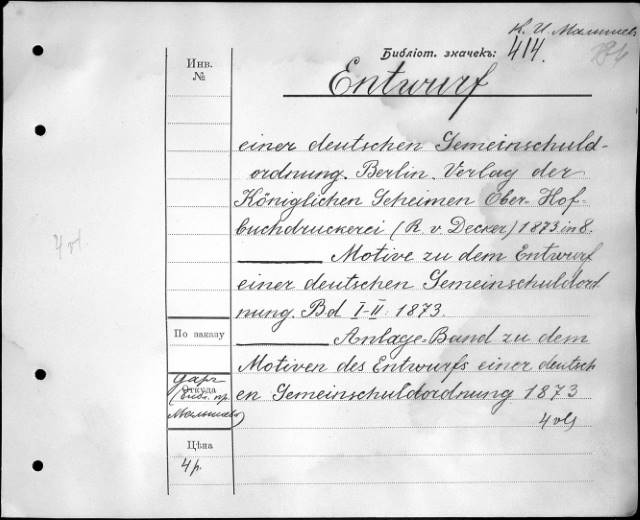 К. И. Малышев
Библіот. значекъ: 414.
184
Инв.
№
Entwurf
einer deutschen Gemeinschuld-
ordnung. Berlin. Verlag der
Königlichen Geheimen Ober-Hof-
buchdruckerei (R. v. Decker) 1873. in 8.
Motive zu dem Entwurf
einer deutschen Gemeinschuldord
nung. Bd I-II. 1873.
Anlage-Band zu dem
Motiven des Entwurfs einer deutsch
en Gemeinschuldordnung 1873
4 vls
4 vl.
По заказу
Откуда
даръ
(библ. пр.
Малышева)
Цѣна
4 р.